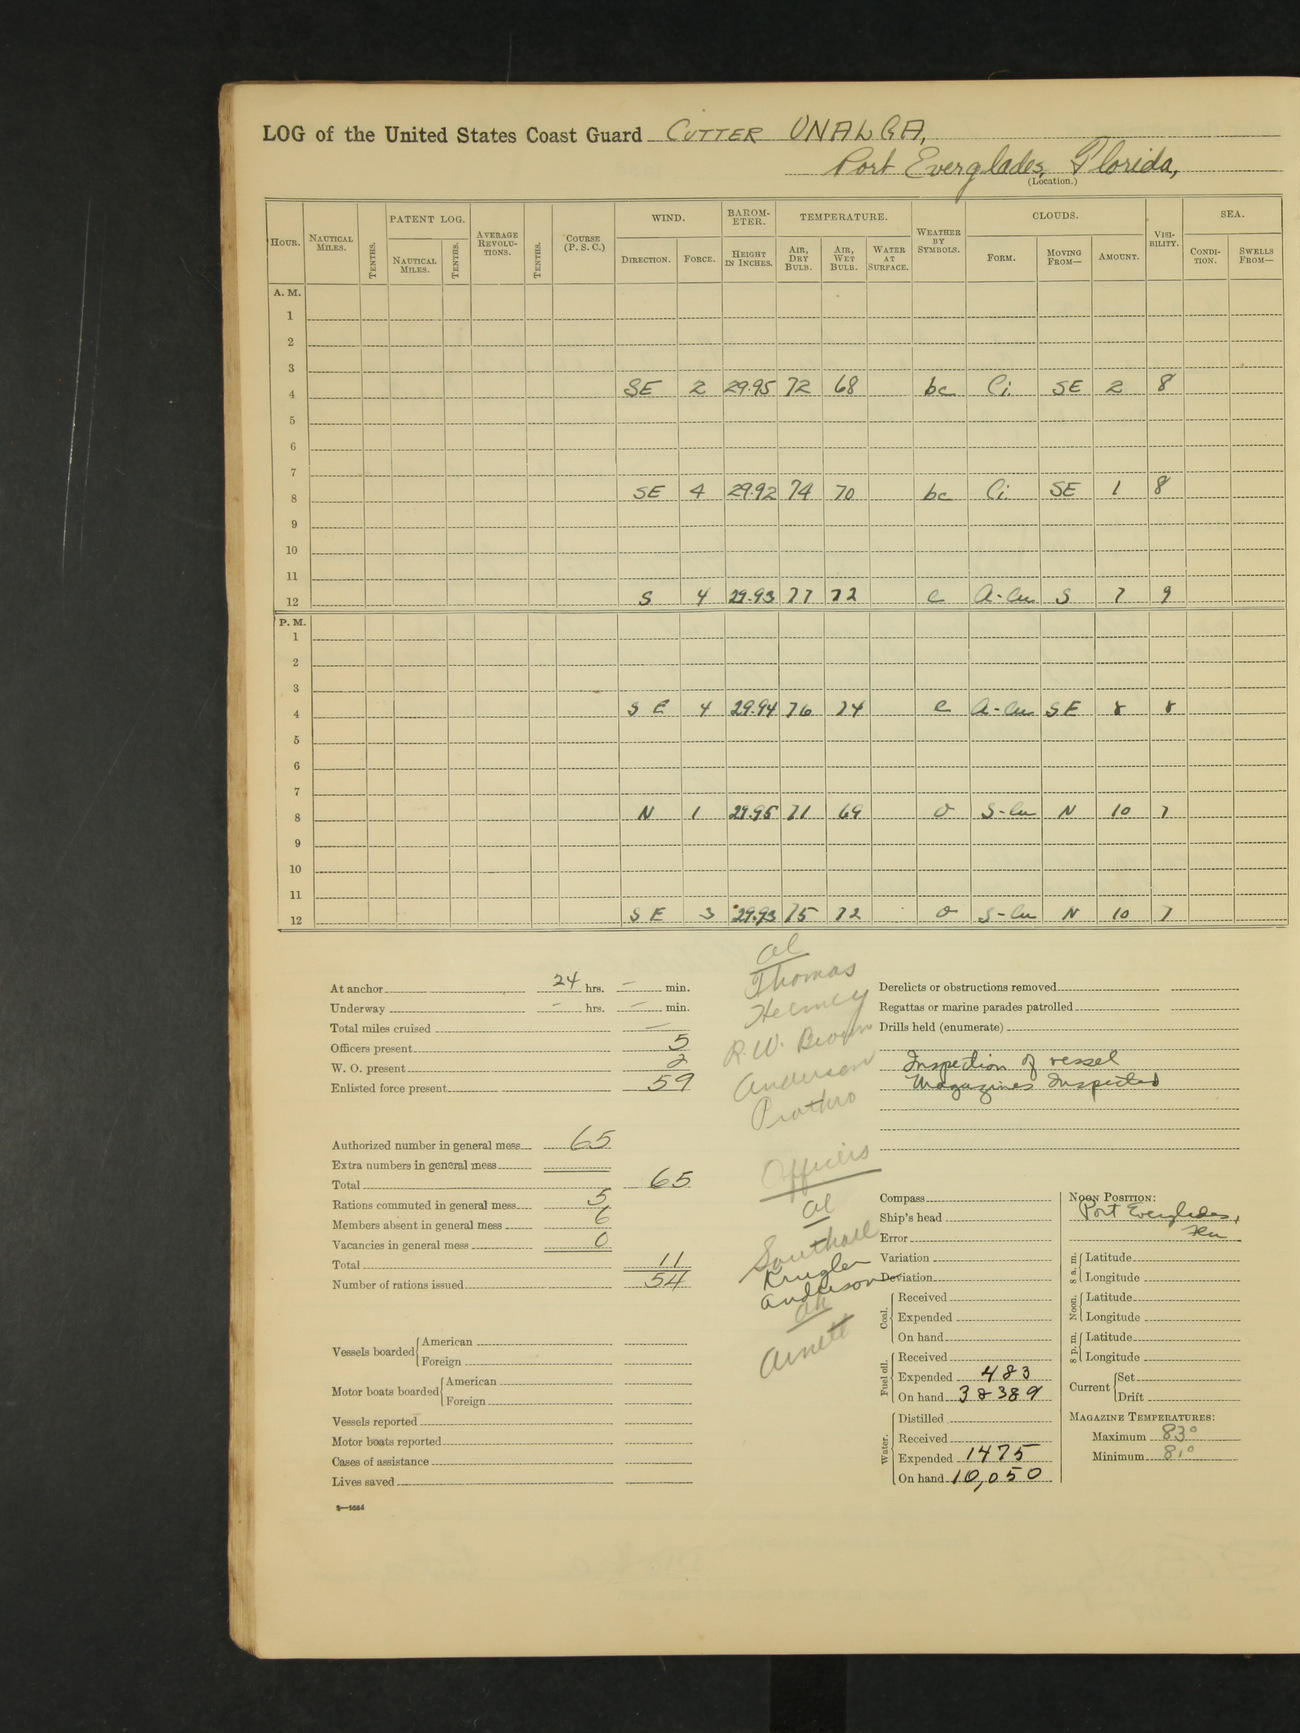 LOG of the United States Coast Guard CUTTER UNALGA,
Port Everglades, Florida,
(Location.)
HOUR. NAUTICAL MILES. TENTHS. PATENT LOG. NAUTICAL MILES. TENTHS. AVERAGE REVOLUTIONS. TENTHS. COURSE (P. S. C.) WIND. DIRECTION. FORCE. BAROMETER. HEIGHT IN INCHES. TEMPERATURE. AIR, DRY BULB. AIR, WET BULB. WATER AT SURFACE. WEATHER BY SYMBOLS. CLOUDS. FORM. MOVING FROM— AMOUNT. VISIBILITY. SEA. CONDITION. SWELLS FROM—
A. M.
1
2
3
4 SE 2 29.95 72 68 bc Ci SE 2 8
5
6
7
8 SE 4 29.92 74 70 bc Ci SE 1 8
9
10
11
12 S 4 29.93 77 72 c A-Cu S 7 9
P. M.
1
2
3
4 SE 4 29.94 76 74 c A-Cu SE 8 8
5
6
7
8 N 1 29.95 71 69 o S-Cu N 10 7
9
10
11
12 SE 3 29.93 75 72 o S-Cu N 10 7
At anchor 24 hrs. — min.
Underway — hrs. — min.
Total miles cruised —
Officers present 5
W. O. present 2
Enlisted force present 59
Authorized number in general mess 65
Extra numbers in general mess
Total 65
Rations commuted in general mess 5
Members absent in general mess 6
Vacancies in general mess 0
Total 11
Number of rations issued 54
Vessels boarded American
Foreign
Motor boats boarded American
Foreign
Vessels reported
Motor boats reported
Cases of assistance
Lives saved
al
Thomas
R.W. Brown
Anderson
Prothro
Officers
al
Southall
Krugler
Anderson
Arnett
Derelicts or obstructions removed
Regattas or marine parades patrolled
Drills held (enumerate)
Inspection of vessel
Magazines Inspected
Compass
Ship's head
Error
Variation
Deviation
Coal. Received
Expended
On hand
Fuel oil. Received
Expended 483
On hand 38389
Water. Distilled
Received
Expended 1475
On hand 10,050
NOON POSITION:
Port Everglades,
8 a. m. Latitude
Longitude
Noon. Latitude
Longitude
8 p. m. Latitude
Longitude
Current Set
Drift
MAGAZINE TEMPERATURES:
Maximum 83°
Minimum 81°